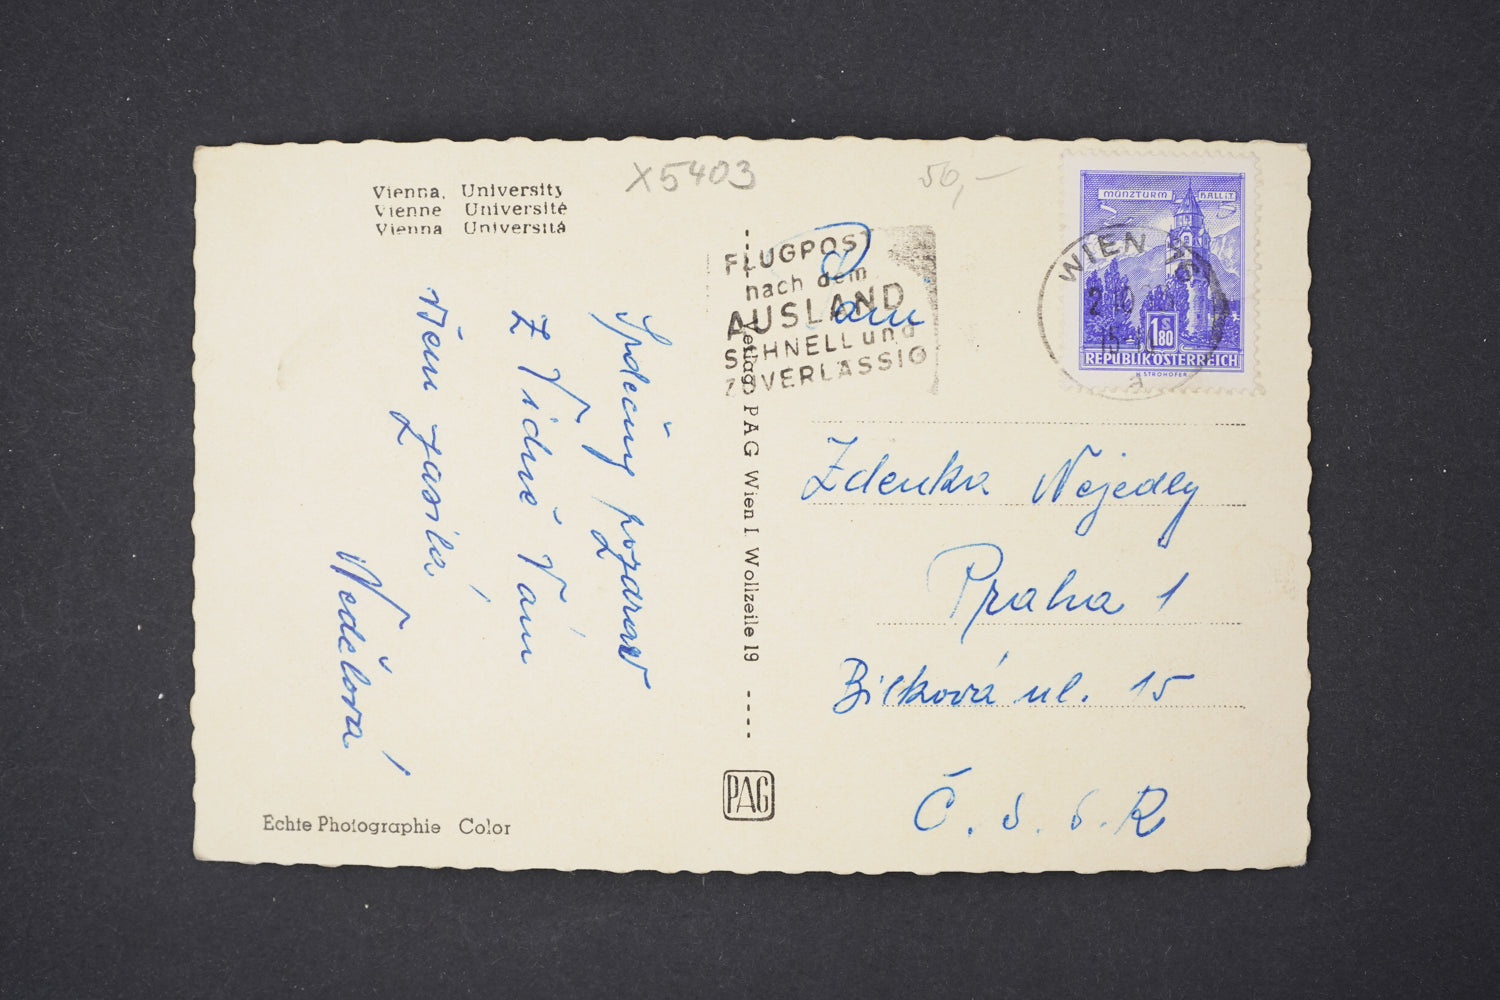 X5403
50,—
Vienna, University
Vienne Université
Vienna Università
FLUGPOST
nach dem
AUSLAND
SCHNELL und
ZUVERLÄSSIG
MÜNZTURM HALL i.T.
WIEN
S 1.80
REPUBLIK ÖSTERREICH
H. STROHOFER
Srdečný pozdrav
z Vídně Vám
všem zasílá
Nedělová
Verlag PAG Wien I. Wollzeile 19
PAG
Zdenka Nejedlý
Praha 1
Bílková ul. 15
Č.S.S.R
Echte Photographie Color